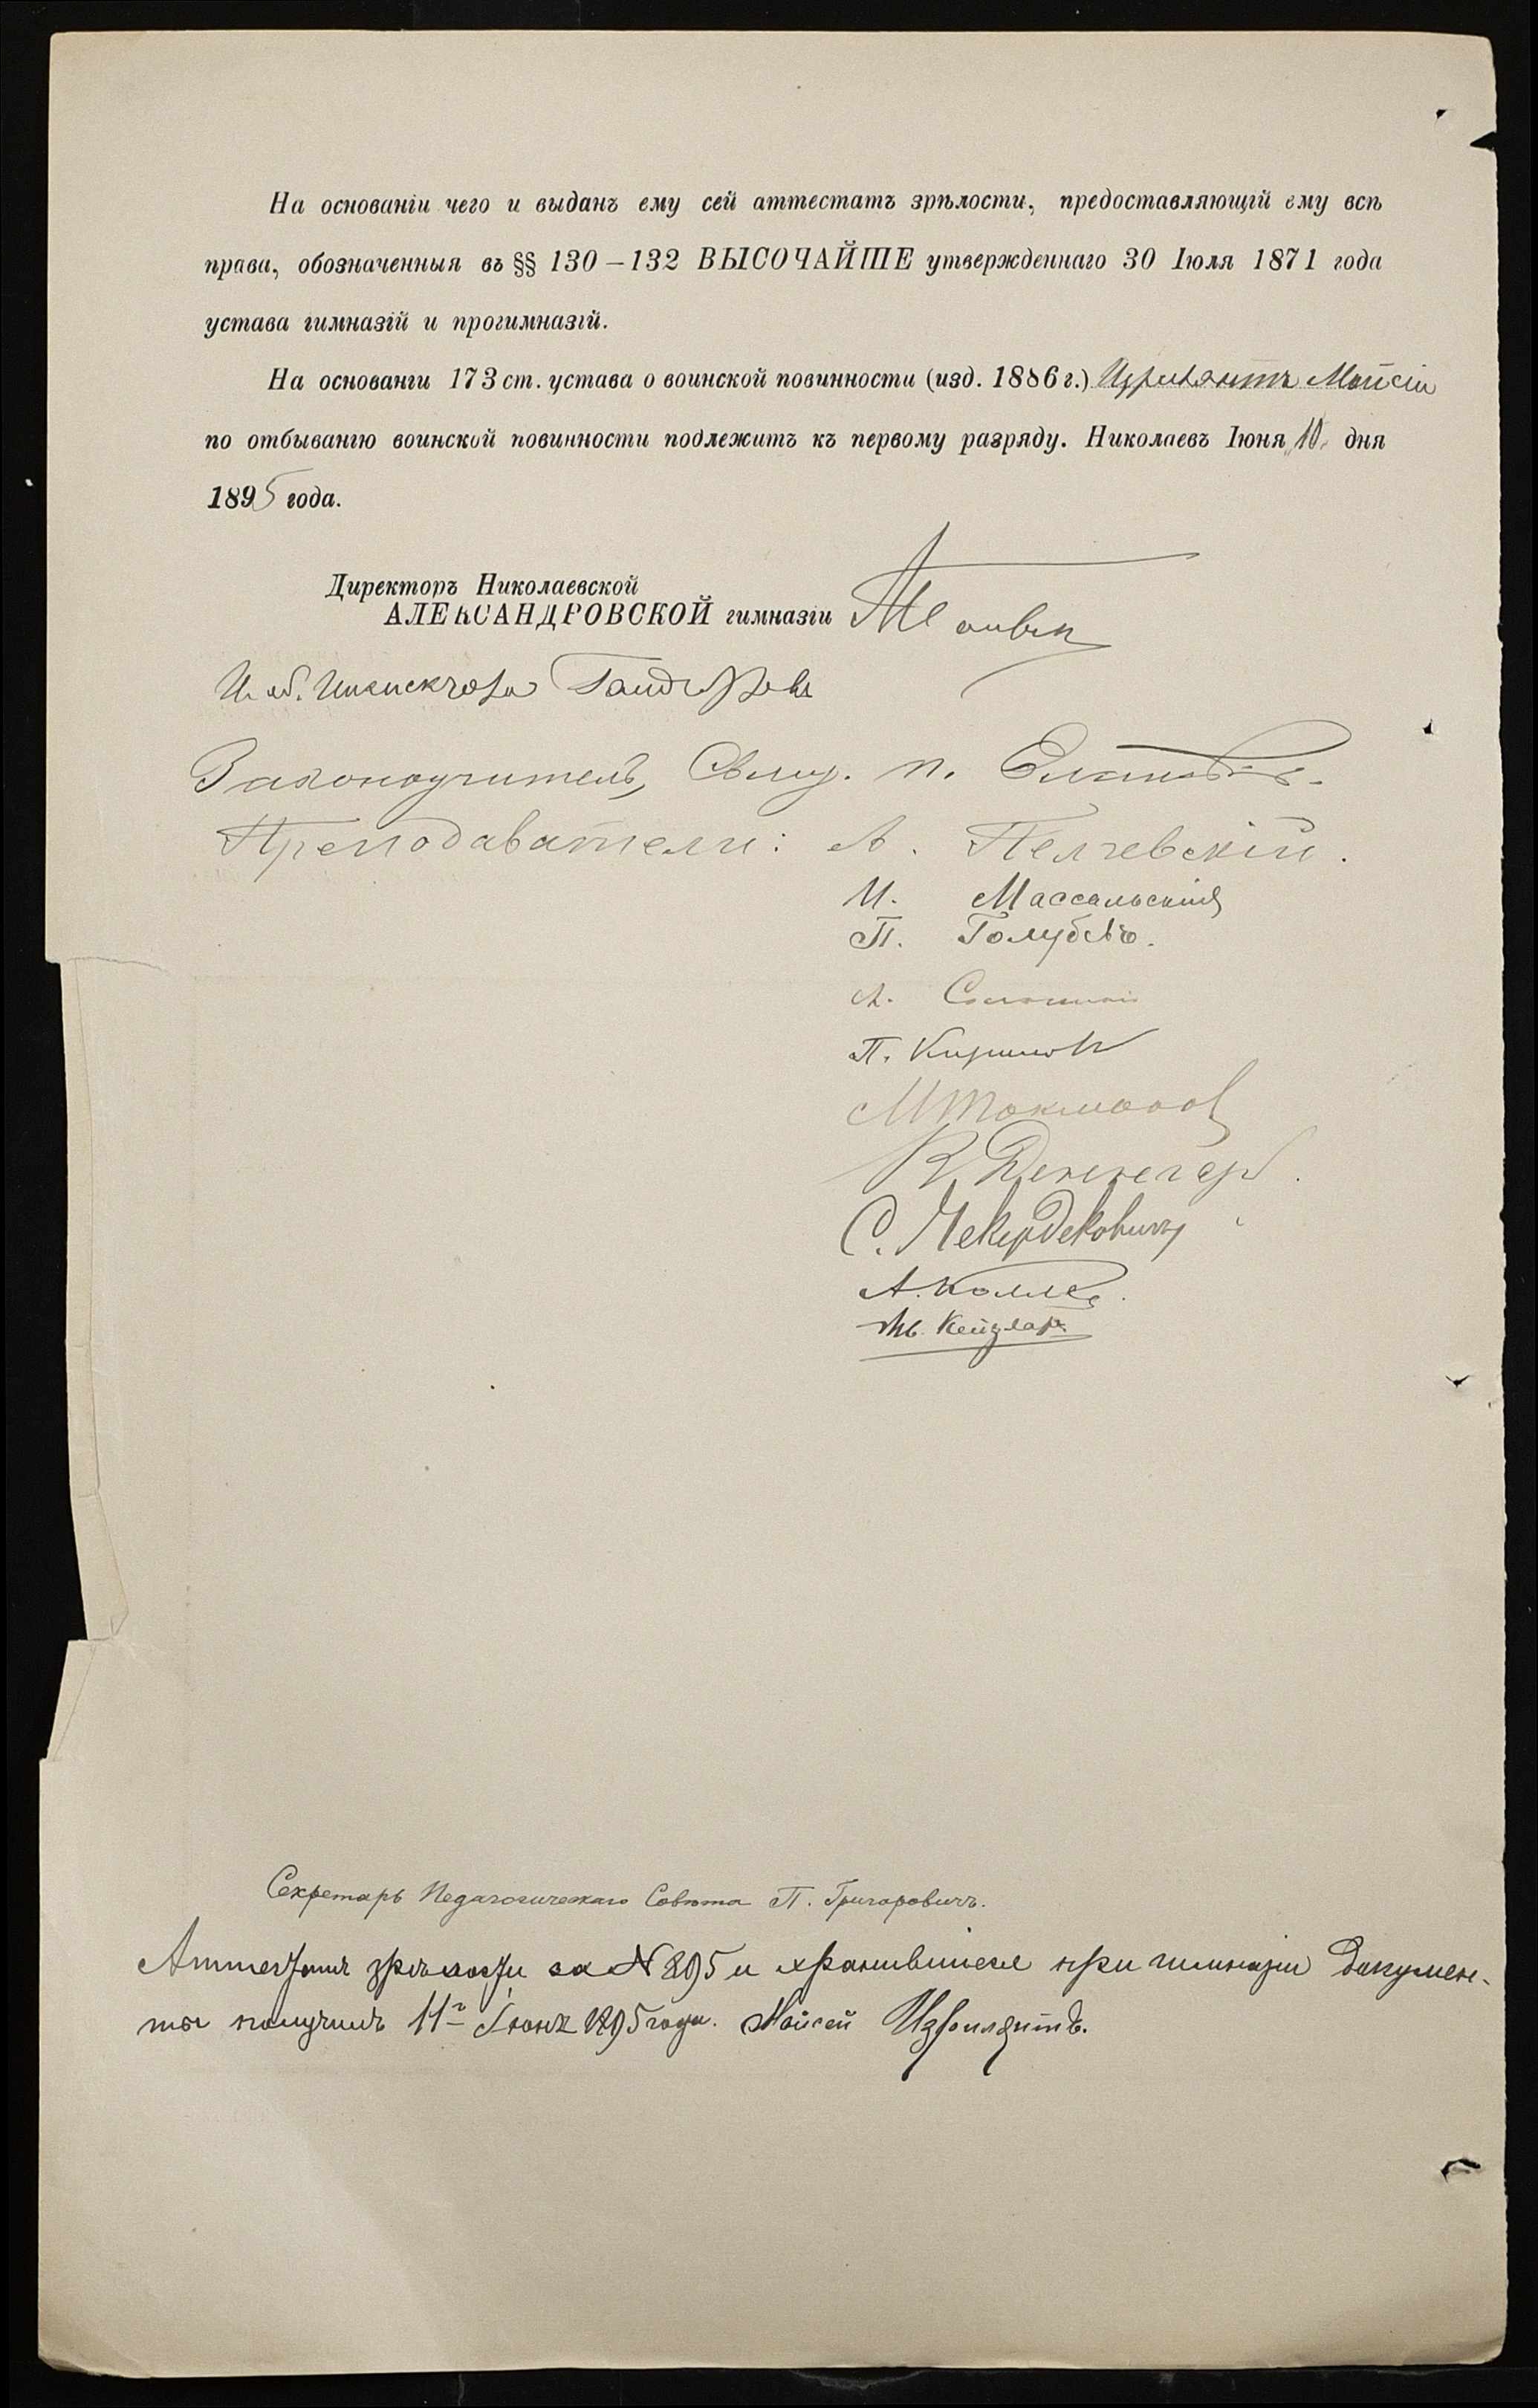 На основаніи чего и выданъ ему сей аттестатъ зрѣлости, предоставляющій ему всѣ
права, обозначенныя въ §§ 130–132 ВЫСОЧАЙШЕ утвержденнаго 30 Іюля 1871 года
устава гимназій и прогимназій.
На основаніи 173 ст. устава о воинской повинности (изд. 1886 г.) Моисей
по отбыванію воинской повинности подлежитъ къ первому разряду. Николаевъ Іюня „10„ дня
1895 года.
Директоръ Николаевской
АЛЕКСАНДРОВСКОЙ гимназіи
И. об. Инспектора
Законоучитель, Свящ. п.
Преподаватели: А. Пелчевскій.
И. Массальскій
П. Голубевъ.
А.
П.
М Токмаковъ
В.
С. Чекердековичъ
А. Коллеръ
Секретарь Педагогическаго Совѣта П. Григоровичъ.
Аттестатъ зрѣлости за № 895 и хранившіеся при гимназіи докумен-
ты получилъ 11го Іюня 1895 года. Мойсей Изроилянтъ.